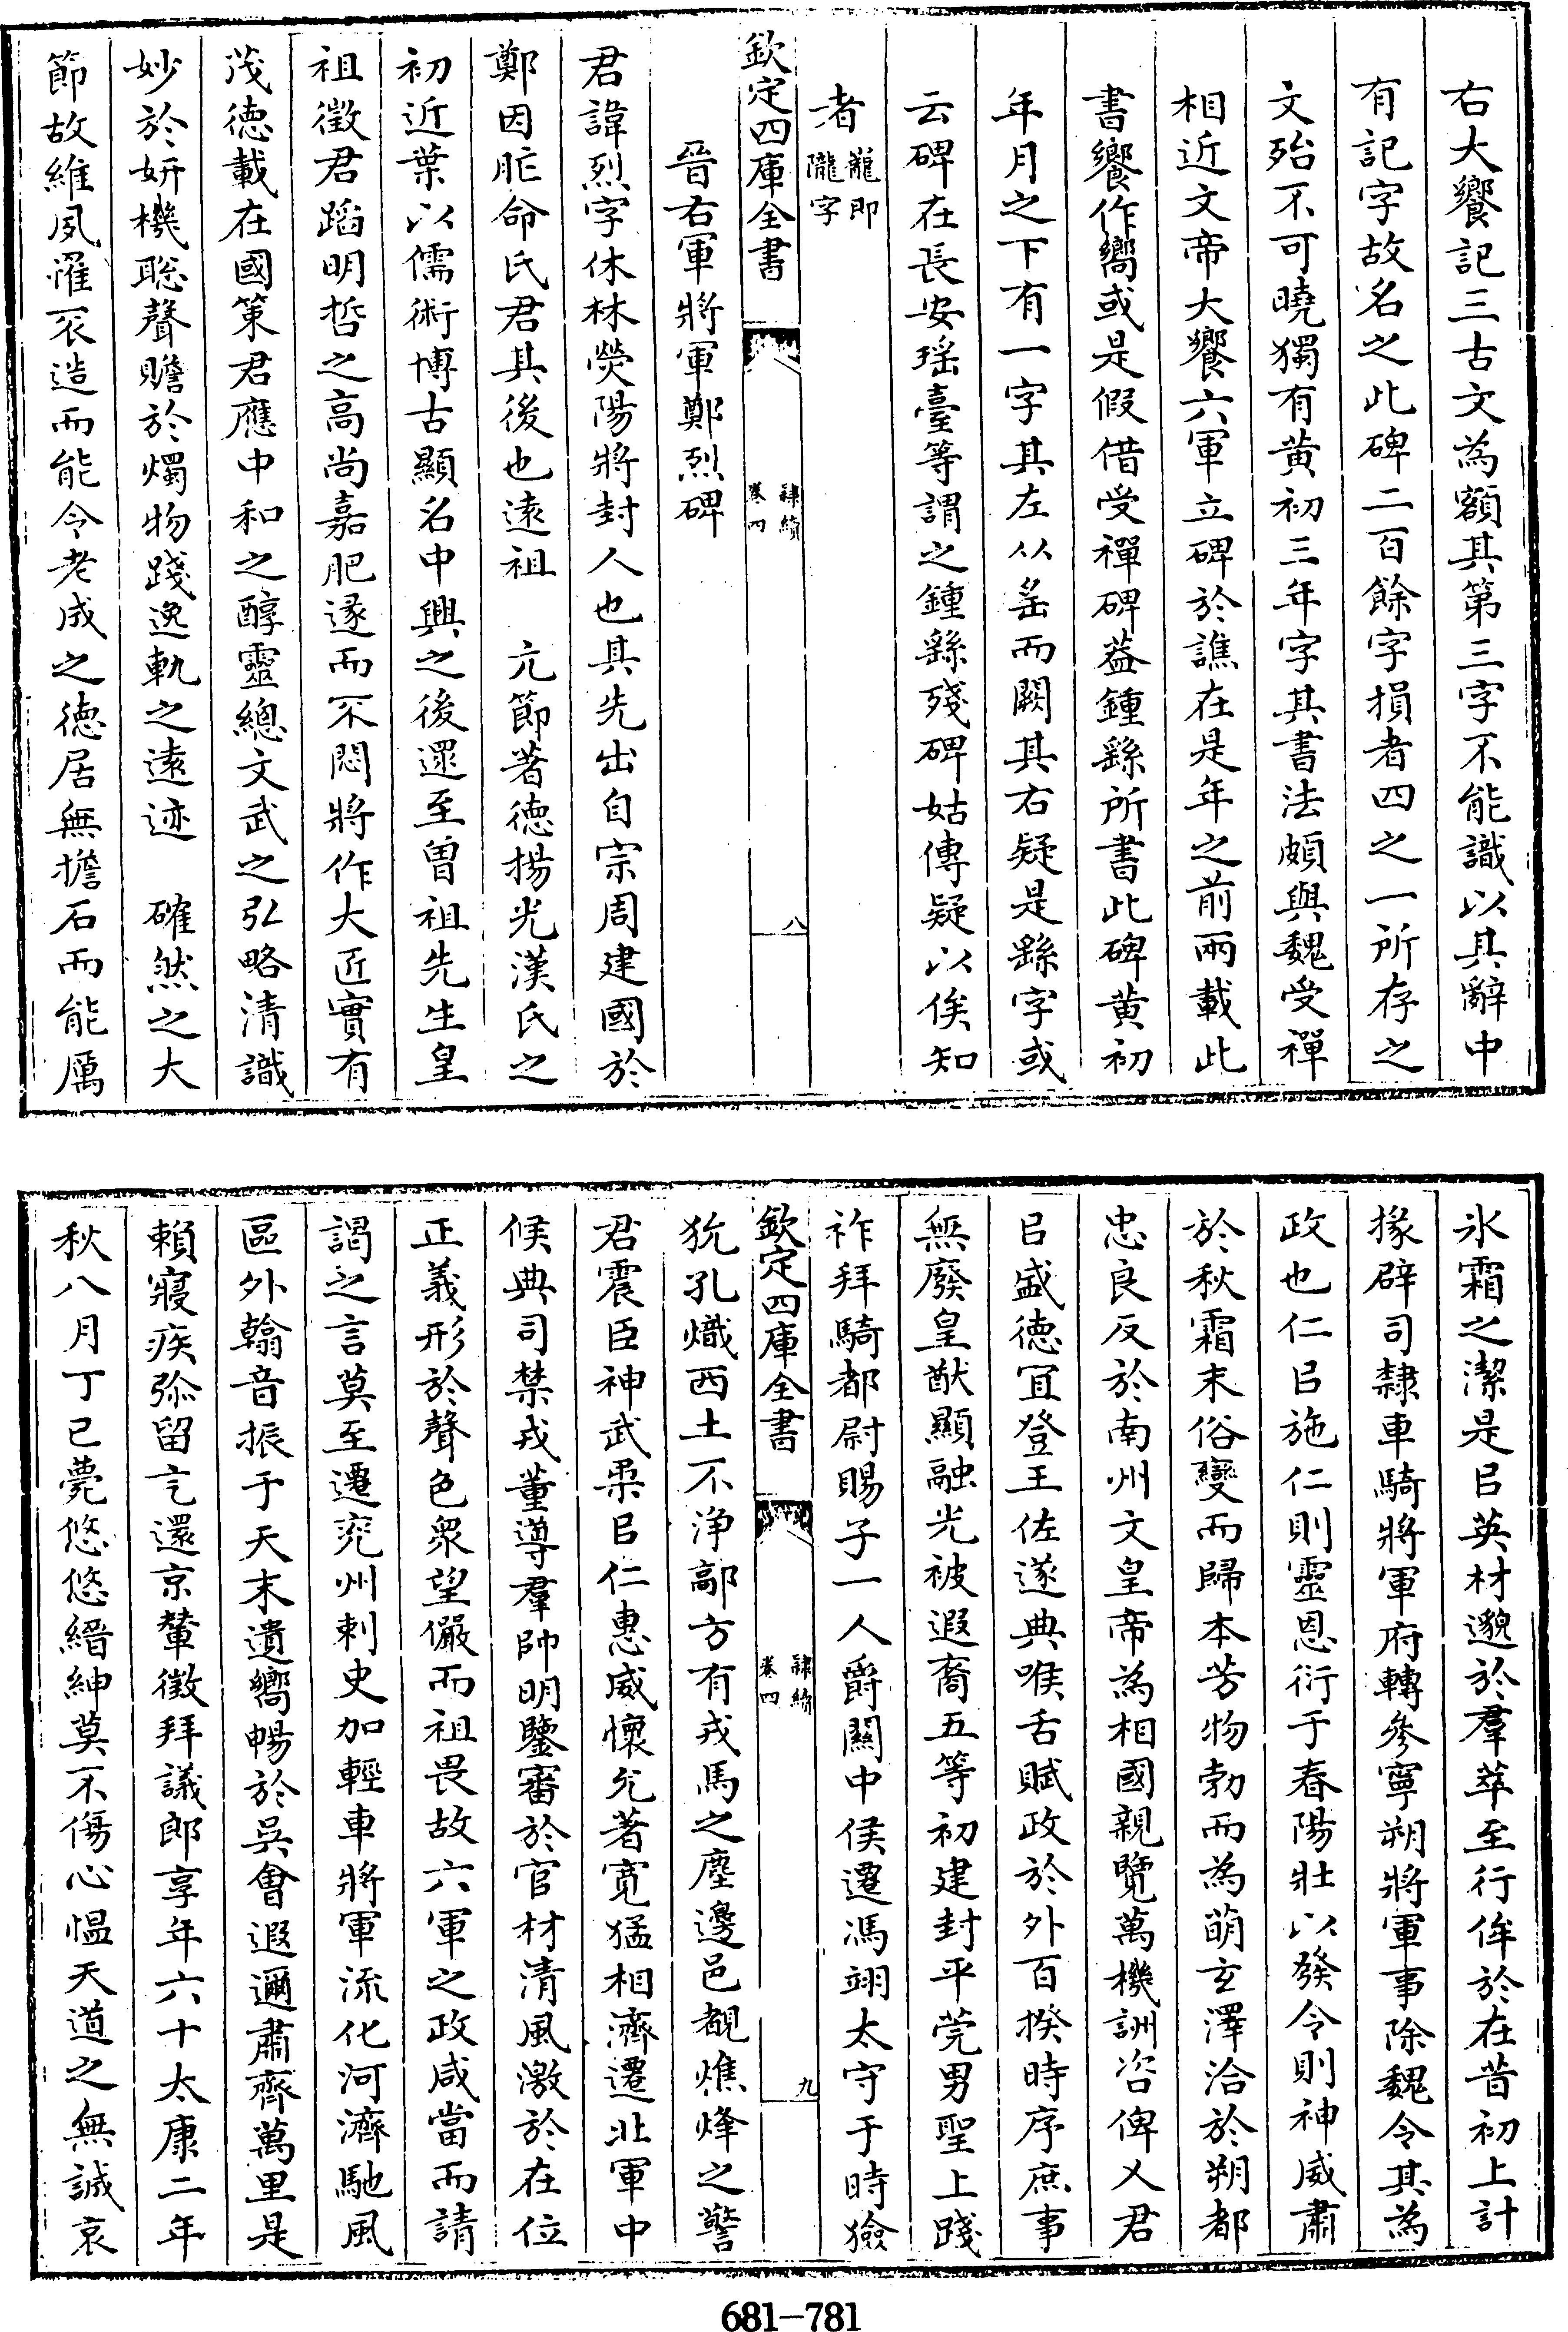 右大饗記三古文為額其第三字不能識以其辭中
有記字故名之此碑二百餘字損者四之一所存之
文殆不可曉獨有黄初三年字其書法頗與魏受禪
相近文帝大饗六軍立碑於譙在是年之前兩載此
書饗作嚮或是假借受禪碑葢鍾繇所書此碑黄初
年月之下有一字其左从䍃而闕其右疑是繇字或
云碑在長安瑶臺等謂之鍾繇殘碑姑傳疑以俟知
者 㡣即隴字
欽定四庫全書 隸續 卷四 八
晉右軍將軍鄭烈碑
君諱烈字休林熒陽將封人也其先出自宗周建國於
鄭因胙命氏君其後也逺祖 亢節著徳揚光漢氏之
初近葉以儒術博古顯名中興之後還至曽祖先生皇
祖徵君蹈明哲之高尚嘉肥遂而不悶將作大匠實有
茂徳載在國策君應中和之醇靈總文武之弘略清識
妙於妍機聡聲贍於燭物踐逸軌之遠迹 確然之大
節故維夙罹不造而能令老成之徳居無擔石而能厲
氷霜之潔是㠯英材邈於羣萃至行侔於在昔初上計
掾辟司隸車騎將軍府轉參寧朔將軍事除魏令其為
政也仁㠯施仁則靈恩衍于春陽壯以發令則神威肅
於秋霜末俗變而歸本芳物勃而為萌玄澤洽於朔都
忠良反於南州文皇帝為相國親覽萬機詶咨俾乂君
㠯盛徳冝登王佐遂典喉舌賦政於外百揆時序庶事
無廢皇猷顯融光被遐裔五等初建封平莞男聖上踐
祚拜騎都尉賜子一人爵關中侯遷馮翊太守于時獫
狁孔熾西土不浄鄗方有戎馬之塵邊邑覩燋烽之警
君震臣神武柔㠯仁惠威懷允著寛猛相濟遷北軍中
候典司禁戎董導羣帥明鑒審於官材清風激於在位
正義形於聲色衆望儼而祖畏故六軍之政咸當而請
謁之言莫至遷兖州刺史加輕車將軍流化河濟馳風
區外翰音振于天末遺嚮暢於吳會遐邇肅齊萬里是
賴寢疾弥留乞還京輦徴拜議郎享年六十太康二年
秋八月丁已薨悠悠縉紳莫不傷心愠天道之無諴哀
欽定四庫全書 隸續 卷四 九
681-781